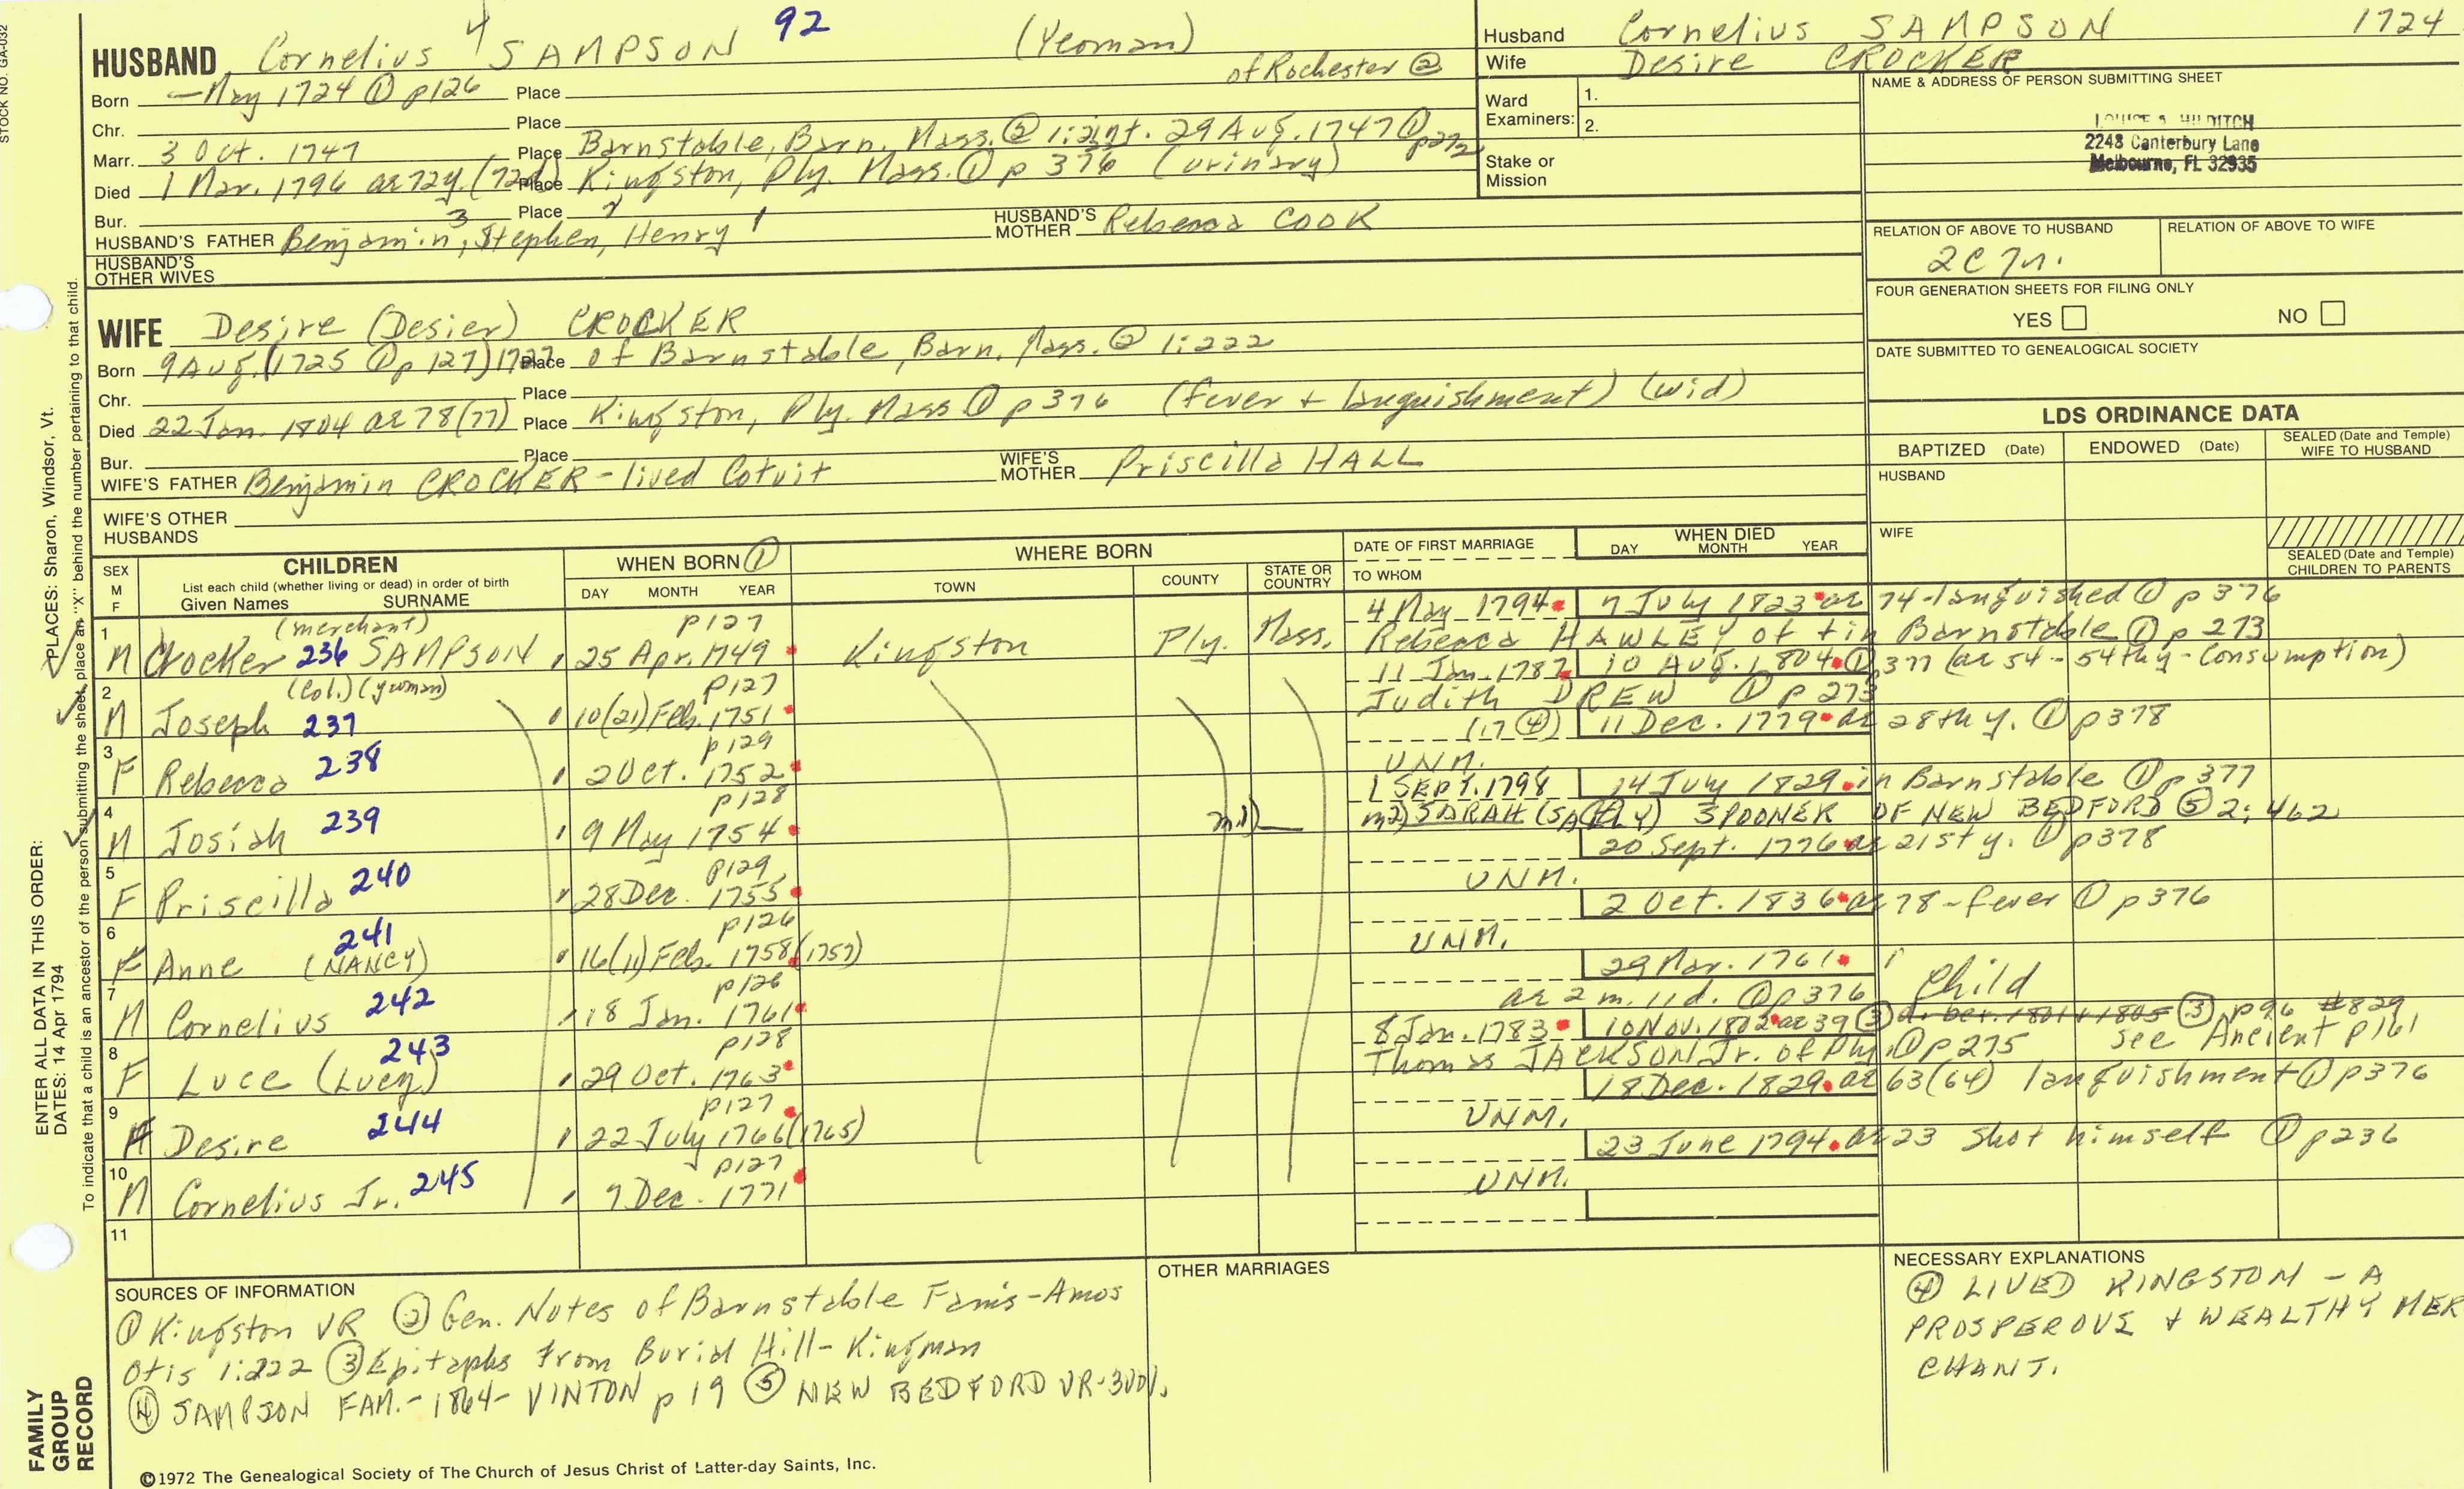 STOCK NO. GA-032
HUSBAND Cornelius 4 SAMPSON 92 (Yeoman)
of Rochester ②
Born — May 1724 ① p126 Place
Chr. Place
Marr. 3 Oct. 1747 Place Barnstable, Barn. Mass. ② 1: int. 29 Aug. 1747 ① p272
Died 1 Mar. 1796 ae 72y. (72d) Place Kingston, Ply. Mass. ① p 376 (urinary)
Bur. Place
HUSBAND'S FATHER Benjamin 3, Stephen 2, Henry 1 HUSBAND'S MOTHER Rebecca COOK
HUSBAND'S OTHER WIVES
WIFE Desire (Desier) CROCKER
Born 9 Aug. (1725 ① p 127) 1727 Place of Barnstable, Barn. Mass. ② 1:222
Chr. Place
Died 22 Jan. 1804 ae 78 (77) Place Kingston, Ply. Mass ① p 376 (fever + languishment) (wid)
Bur. Place
WIFE'S FATHER Benjamin CROCKER - lived Cotuit WIFE'S MOTHER Priscilla HALL
WIFE'S OTHER HUSBANDS
Husband Cornelius SAMPSON 1724
Wife Desire CROCKER
Ward Examiners: 1.
2.
Stake or Mission
NAME & ADDRESS OF PERSON SUBMITTING SHEET
2248 Canterbury Lane
Melbourne, FL 32935
RELATION OF ABOVE TO HUSBAND RELATION OF ABOVE TO WIFE
2C 7r.
FOUR GENERATION SHEETS FOR FILING ONLY
YES NO
DATE SUBMITTED TO GENEALOGICAL SOCIETY
LDS ORDINANCE DATA
BAPTIZED (Date) ENDOWED (Date) SEALED (Date and Temple) WIFE TO HUSBAND
HUSBAND
WIFE
SEALED (Date and Temple) CHILDREN TO PARENTS
SEX M F CHILDREN WHEN BORN ① WHERE BORN DATE OF FIRST MARRIAGE WHEN DIED
List each child (whether living or dead) in order of birth
Given Names SURNAME DAY MONTH YEAR TOWN COUNTY STATE OR COUNTRY TO WHOM DAY MONTH YEAR
(merchant) p127 4 May 1794 7 July 1823 ae 74 - languished ① p 376
1 M Crocker 236 SAMPSON 25 Apr. 1749 Kingston Ply. Mass. Rebecca HAWLEY of + in Barnstable ① p 273
(Col.) (yeoman) p127 11 Jan. 1787 10 Aug. 1804 ① 377 (ae 54 - 54thy - Consumption)
2 M Joseph 237 10(21) Feb. 1751 Judith DREW ① p 273
p129 (17 ④) 11 Dec. 1779 ae 28th y. ① p378
3 F Rebecca 238 2 Oct. 1752 UNM.
p128 1 SEPT. 1798 14 July 1829 in Barnstable ① p 377
4 M Josiah 239 9 May 1754 m2) SARAH (SALLY) SPOONER OF NEW BEDFORD ⑤ 2: 462
p129 20 Sept. 1776 ae 21st y. ① p378
5 F Priscilla 240 28 Dec. 1755 UNM.
p126 2 Oct. 1836 ae 78 - fever ① p 376
6 F Anne (NANCY) 241 16(11) Feb. 1758 (1757) UNM.
p126 29 Mar. 1761 Child
7 M Cornelius 242 18 Jan. 1761 ae 2 m. 11 d. ① p376
p128 8 Jan. 1783 10 Nov. 1802 ae 39 ③ d. bet. 1801 + 1805 ③ p96 #829
8 F Luce (Lucy) 243 29 Oct. 1763 Thomas JACKSON Jr. of Ply. ① p 275 see Ancient p161
p127 18 Dec. 1829 ae 63 (64) languishment ① p376
9 F Desire 244 22 July 1766 (1765) UNM.
p127 23 June 1794 ae 23 Shot himself ① p236
10 M Cornelius Jr. 245 7 Dec. 1771 UNM.
11
SOURCES OF INFORMATION
① Kingston VR ② Gen. Notes of Barnstable Fam's - Amos
Otis 1:222 ③ Epitaphs from Burial Hill - Kingman
④ SAMPSON FAM. - 1864 - VINTON p 19 ⑤ NEW BEDFORD VR - 3 vol.
OTHER MARRIAGES
NECESSARY EXPLANATIONS
④ LIVED KINGSTON - A
PROSPEROUS + WEALTHY MER
CHANT.
©1972 The Genealogical Society of The Church of Jesus Christ of Latter-day Saints, Inc.
ENTER ALL DATA IN THIS ORDER:
PLACES: Sharon, Windsor, Vt.
DATES: 14 Apr 1794
To indicate that a child is an ancestor of the person submitting the sheet, place an "X" behind the number pertaining to that child.
FAMILY GROUP RECORD